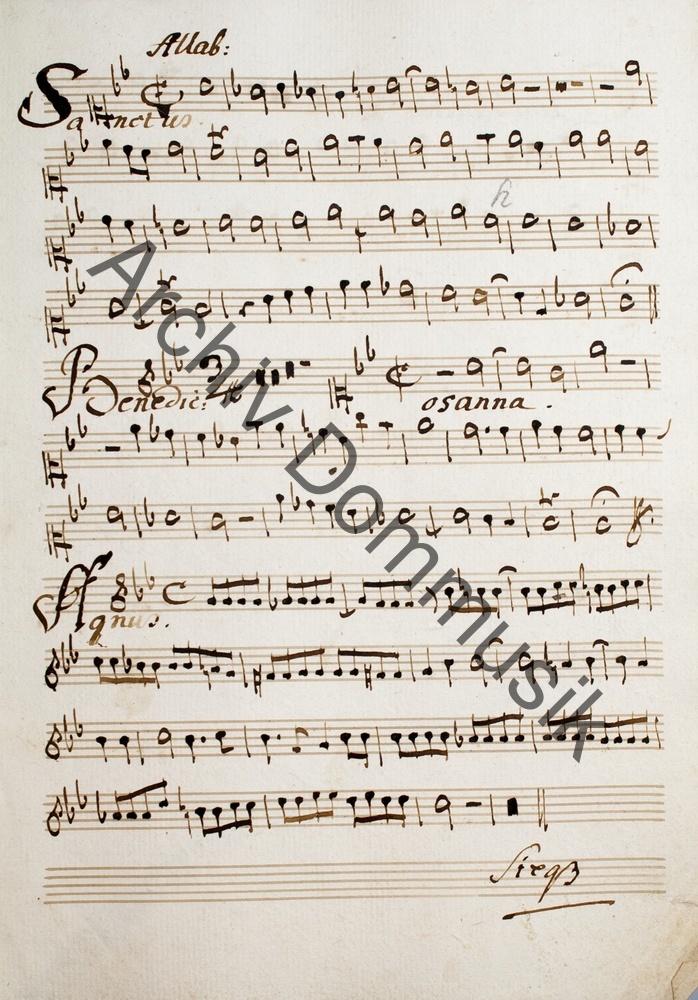 Allab:
Sanctus.
Benedic: osanna.
Agnus.
Archiv Dommusik